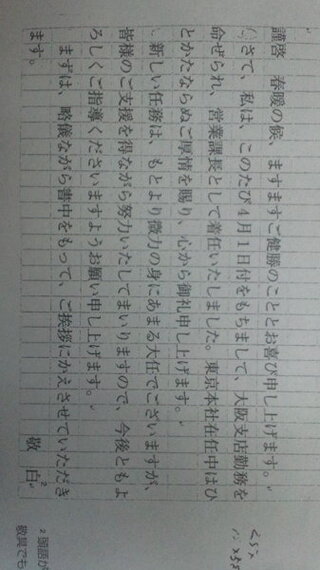 謹啓　春暖の候、ますますご健勝のこととお喜び申し上げます。
さて、私は、このたび4月1日付をもちまして、大阪支店勤務を
命ぜられ、営業課長として着任いたしました。東京本社在任中はひ
とかたならぬご厚情を賜り、心から御礼申し上げます。
新しい任務は、もとより微力の身にあまる大任でございますが、
皆様のご支援を得ながら努力いたしてまいりますので、今後ともよ
ろしくご指導くださいますようお願い申し上げます。
まずは、略儀ながら書中をもって、ご挨拶にかえさせていただき
ます。
敬　白2
2 頭語が
敬具でも